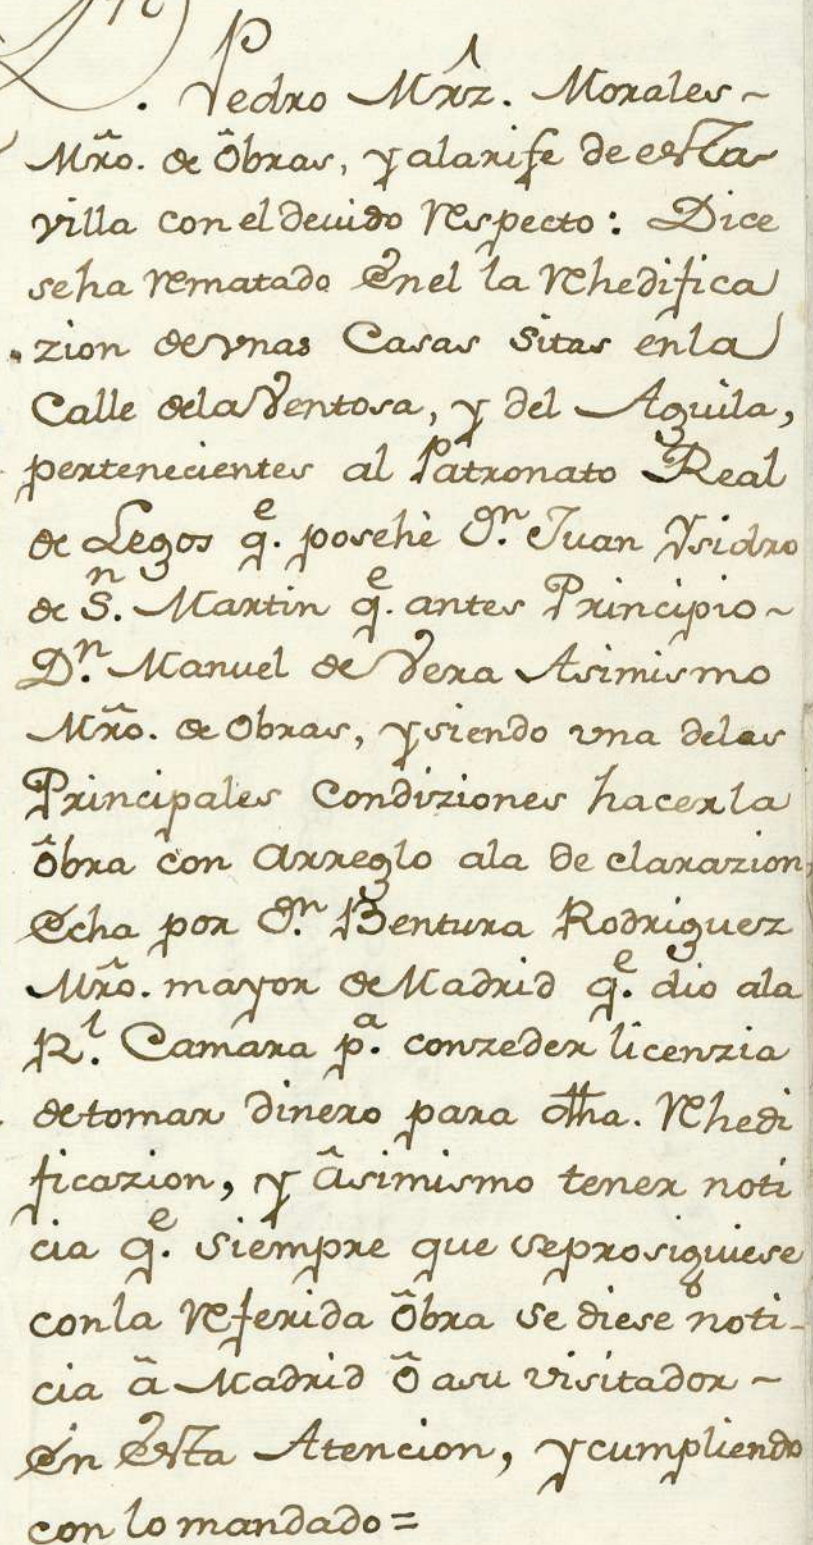 Pedro Mrz. Morales~
Mro̅. de ôbras, y alarife de esta
villa con el devido Respecto: Dice
se ha Rematado Enel la Rhedifica
zion de vnas Casas Sitas en la
Calle dela Ventosa, y del Aguila,
pertenecientes al Patronato Real
de Legos q.e posehè D.n Juan Ysidro
de S.n Martin q.e antes Principio~
D.n Manuel de Vera Asimismo
Mro̅. de Obras, y siendo vna delas
Principales Condiziones hacer la
ôbra con arreglo ala de clarazion,
Echa por D.n Bentura Rodriguez
Mro̅. mayor de Madrid q.e dio ala
R.l Camara p.a conzeder licenzia
de tomar dinero para dha. Rhedi
ficazion, y âsimismo tener noti
cia q.e siempre que se prosiguiese
con la Referida ôbra se diese noti-
cia â Madrid ô asu visitador~
En Esta Atencion, y cumpliendo
con lo mandado=